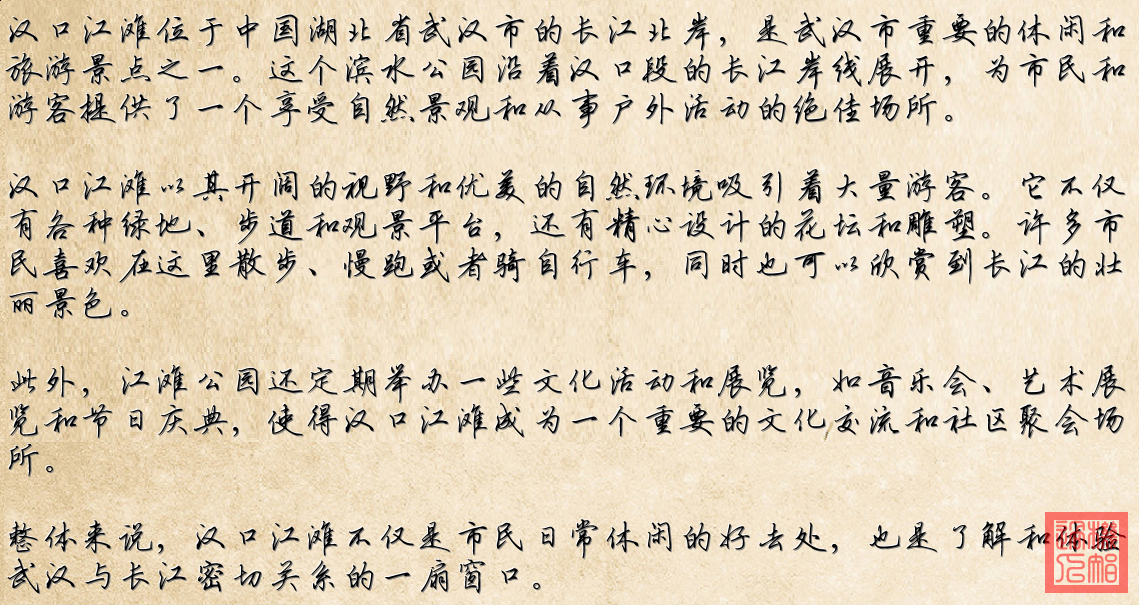 汉口江滩位于中国湖北省武汉市的长江北岸，是武汉市重要的休闲和
旅游景点之一。这个滨水公园沿着汉口段的长江岸线展开，为市民和
游客提供了一个享受自然景观和从事户外活动的绝佳场所。
汉口江滩以其开阔的视野和优美的自然环境吸引着大量游客。它不仅
有各种绿地、步道和观景平台，还有精心设计的花坛和雕塑。许多市
民喜欢在这里散步、慢跑或者骑自行车，同时也可以欣赏到长江的壮
丽景色。
此外，江滩公园还定期举办一些文化活动和展览，如音乐会、艺术展
览和节日庆典，使得汉口江滩成为一个重要的文化交流和社区聚会场
所。
整体来说，汉口江滩不仅是市民日常休闲的好去处，也是了解和体验
武汉与长江密切关系的一扇窗口。